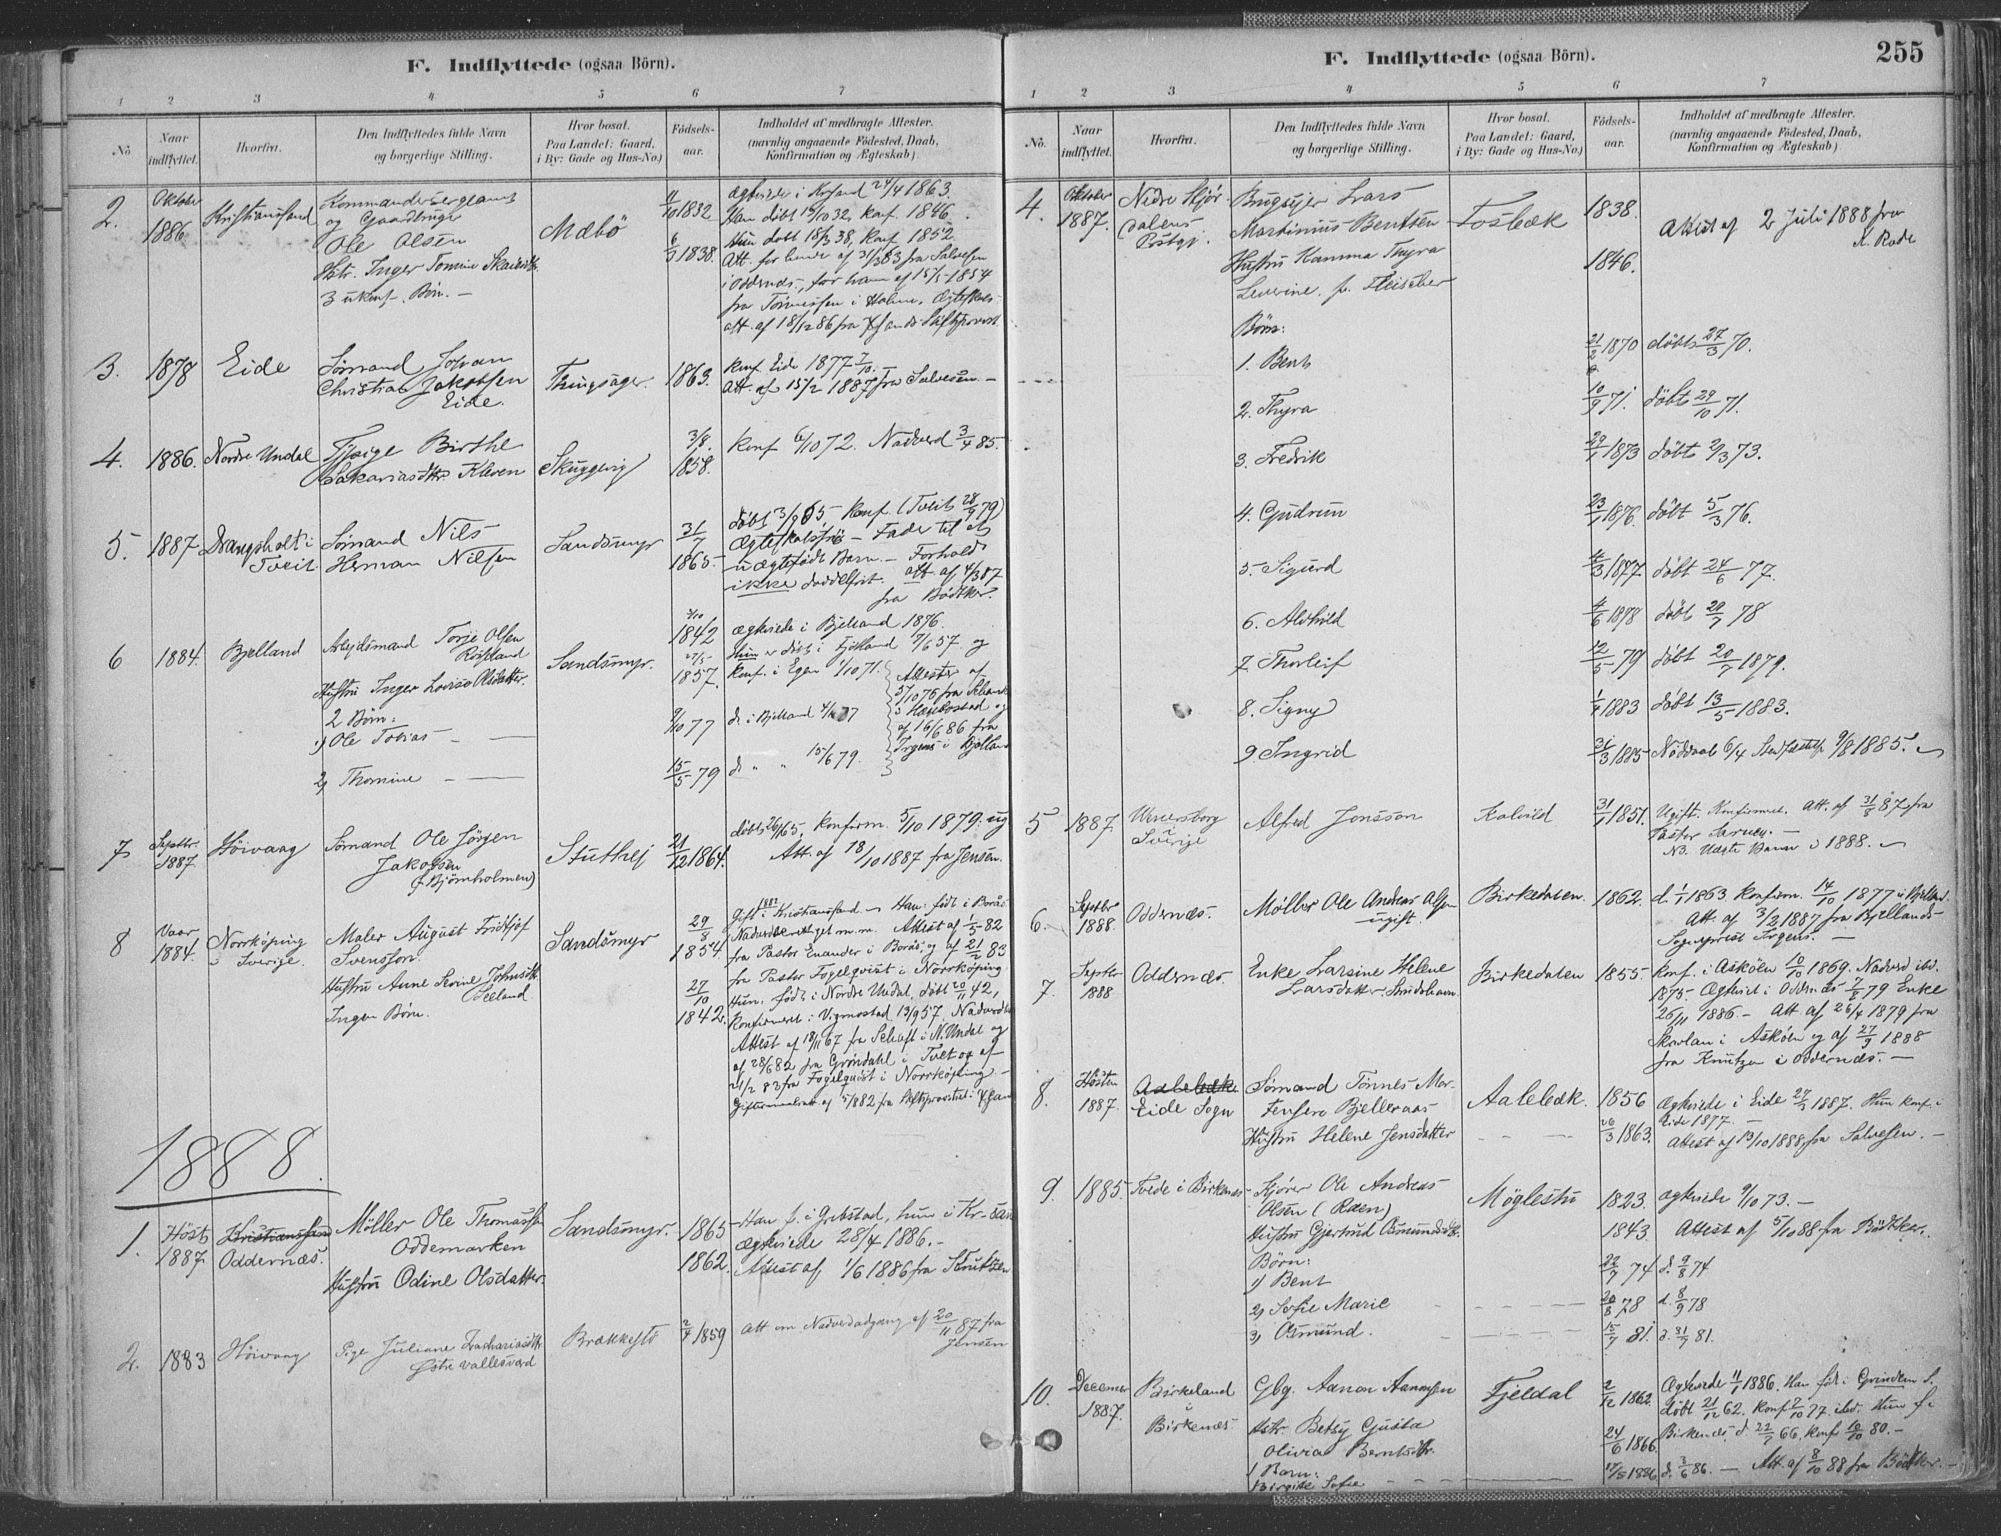 F. Indflyttede (ogsaa Börn).
1 2 3 4 5 6 7
No
Naar indflyttet.
Hvorfra.
Den Indflyttedes fulde Navn og borgerlige Stilling.
Hvor bosat. Paa Landet: Gaard, i By: Gade og Hus-No.)
Födsels-aar.
Indholdet af medbragte Attester. (navnlig angaaende Födested, Daab, Konfirmation og Ægteskab)
2. Oktober 1886 Kristianssand
Kommandersergeant
og Gaardbruger
Ole Olsen
Hstr. Inger Tomine
3 ukonf. Börn. —
Mæbö
1832
1838.
Ægteviede i Krsand 24/4 1863.
Han döbt 14/10 32, konf. 1846.
Hun döbt 18/3 38, konf. 1852
Att. for hende af 31/3 83 fra Salvesen
i Oddernæs, for ham af 15/5 1854
fra Tönnessen i Holme. Ægteskabs-
att. af 18/12 86 fra Kr.sands Stiftsprovst
3. 1878 Eide
Sömand Johan
Christian Jakobsen
Eide.
Thingsager.
1863.
Konf Eide 1877 7/10.
Att. af 15/2 1887 fra Salvesen. —
4. 1886. Nordre Undal
Pige Birthe
Sakariasdtr. Kleven
Skuggevig
3/8. 1858.
Konf 6/10 72. Nadverd 3/4 85.
5. 1887 Drangsholt i Tveit
Sömand Nils
Herman Nilsen
Sandsmyr
31/7 1865.
döbt 3/9 65, Konf. (Tveit 28/9 79)
Ægteskabsfri — Fader til et
uægtefödt Barn. — Forhold
ikke daddelfrit. att. af 4/3 87
fra Bödtker.
6 1884. Bjelland
Arbejdsmand Torje Olsen
Röisland
Hustru Inger Lovise Olsdatter.
2 Börn:
1) Ole Tobias — —
2) Thomine — —
Sandsmyr.
3/10 1842
27/5 1857.
9/10 77
15/5 79
Ægteviede i Bjelland 1876.
Hun er döbt i Fjotland 7/6 57 og
Konf. i Egen 1/10 71.
d. i Bjelland
d. " " 15/6 79.
Attester af
31/10 76 fra
i Hægebostad og
af 16/6 86 fra
Irgens i Bjelland
7 Septbr. 1887. Höivaag
Sömand Ole Jörgen
Jakobsen
(f. Bjömholmen)
Stuthej
21/12 1864.
döbt 26/1 65, konfirm. 5/10 1879. ug
Att. af 18/10 1887 fra Jensen.
8 Vaar 1884. Norrköping i Sverige.
Maler August Fridtjof
Svensson
Hustru Anne Serine Johnsdtr.
Seeland.
Ingen Börn.
Sandsmyr
29/3 1854.
27/10 1842.
Gift 1882 i Kristianssand — Han: födt i Borås
Nadverberettiget m.m. Attest af 1/5 82
fra Pastor Enander i Borås og af 21/2 83
fra Pastor Fogelqvist i Norrköping
Hun. födt i Nordre Undal, döbt 20/11 42,
Konfirmeret i Vigmostad 13/9 57, Nadverdb.
Attest af 18/11 67 fra i N. Undal og
af 28/6 82 fra Gröndahl i Tvet og af
21/2 83 fra Fogelqvist i Norrköping —
1888.
1. Höst 1887 Kristianssand Oddernæs.
Möller Ole Thomassen
Oddemarken
Hustru Odine Olsdatter
Sandsmyr.
1865
1862.
Han f. i Grebstad, hun i Kr-sand
Ægteviede 28/4 1886. —
Attest af 1/6 1886 fra Knutzen
2. 1883 Höivaag
Pige Juliane Zachariasdtr
Östre Vallesverd
Brækkestö
2/4 1859
Att om Nadverdadgang af 20/11 87 fra
Jensen
F. Indflyttede (ogsaa Börn).
255
1 2 3 4 5 6 7
No.
Naar indflyttet.
Hvorfra.
Den Indflyttedes fulde Navn og borgerlige Stilling.
Hvor bosat. Paa Landet: Gaard, i By: Gade og Hus-No.)
Födsels-aar.
Indholdet af medbragte Attester. (navnlig angaaende Födested, Daab, Konfirmation og Ægteskab)
4. Oktober 1887. Nedre Stjördalens Prstgj.
Brugsejer Lars
Martinius Bentsen
Hustru Kamma Thyra
Severine f. Fleischer
Fosbæk
1838.
1846.
Attest af 2 Juli 1888 fra
K. Rode
Börn:
1. Bent 21/2 1870 döbt 27/3 70.
2. Thyra 10/9 71. döbt 29/10 71.
3. Fredrik 29/1 1873 döbt 2/3 73.
4. Gudrun 23/1 1876. döbt 5/3 76.
5. Sigurd 4/3 1877. döbt 24/6 77.
6. Alvhild 4/6 1878 döbt 20/7 78
7. Thorleif 12/5 79 döbt 20/7 1879.
8. Signy 1/4 1883 döbt 13/5 1883.
9 Ingrid 31/3 1885 Nöddaab 6/4 Stadfæstet 9/8 1885.
5 1887. Wenersborg i Sverige
Alfred Jonsson
Kalvild
31/1 1851.
Ugift. Konfirmeret. Att. af 31/8 87 fra
Pastor —
NB. Uægte Barn i 1888.
6. Septbr 1888. Oddernæs.
Møller Ole Andreas Olsen
ugift.
Birkedalen
1862.
d. 1/1 1863 Konfirm. 14/10 1877 i Bjelland.
Att. af 3/2 1887 fra Bjellands-
Sogneprest Irgens. —
7. Septbr 1888 Oddernæs
Enke Larsine Helene
Larsdatter.
Birkedalen
1855
Konf. i Askölen 10/10 1869. Nadverd ibd.
1875. Ægteviet i Oddernæs 7/8 79 Enke
26/11 1886. — Att af 26/4 1879 fra
Skovlan i Askölen og af 27/9 1888
fra Knutzen i Oddernæs. —
8. Hösten 1887. Aalebæk Eide Sogn
Sömand Tönnes Mar-
Bjelleraas
Hustru Helene Jensdatter
Aalebæk.
1856
26/3 1863.
Ægteviede i Eide 27/3 1887. Hun konf. i
Eide 1877. —
Attest af 13/10 1888 fra Salvesen. —
9. 1885. Tvede i Birkenæs
Kjörer Ole Andreas
Olsen (Raen)
Hustru Gjertrud Osmundsdtr.
Börn:
1) Bent
2) Sofie Marie
3) Osmund.
Möglestu
1823.
1843.
22/7 74
20/8 78
15/7 81.
Ægteviede 9/10 73. —
Attest af 5/10 88 fra Bödtker.
d. 9/8 74
d. 8/9 78
d. 31/7 81.
10. Decemer 1887. Birkeland i Birkenæs.
Gbg. Aanon Aanonsen
Hstr. Betsy Gusta
Olivia Berntsdtr.
1 Barn:
Birgitte Sofie
Fjeldal
2/12 1862.
24/6 1866.
1886.
Ægteviede 11/1 1886. Han född i
döbt 21/12 62. Konf 7/10 77. ibd. Hun f. i
Birkenæs d. 22/7 66. Konf 10/10 80. —
d. 3/6 86. — Att. af 8/10 88 fra Bödtker. —